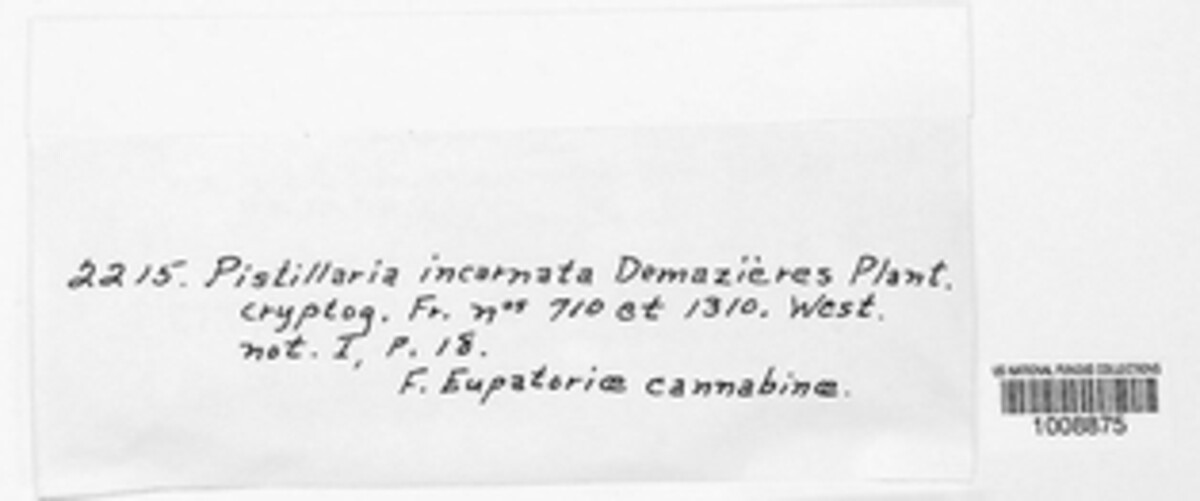 2215. Pistillaria incarnata Demazières Plant.
cryptog. Fr. nos 710 et 1310. West.
not. I, P. 18.
F. Eupatoriæ cannabinæ.
US NATIONAL FUNGUS COLLECTIONS
1008875